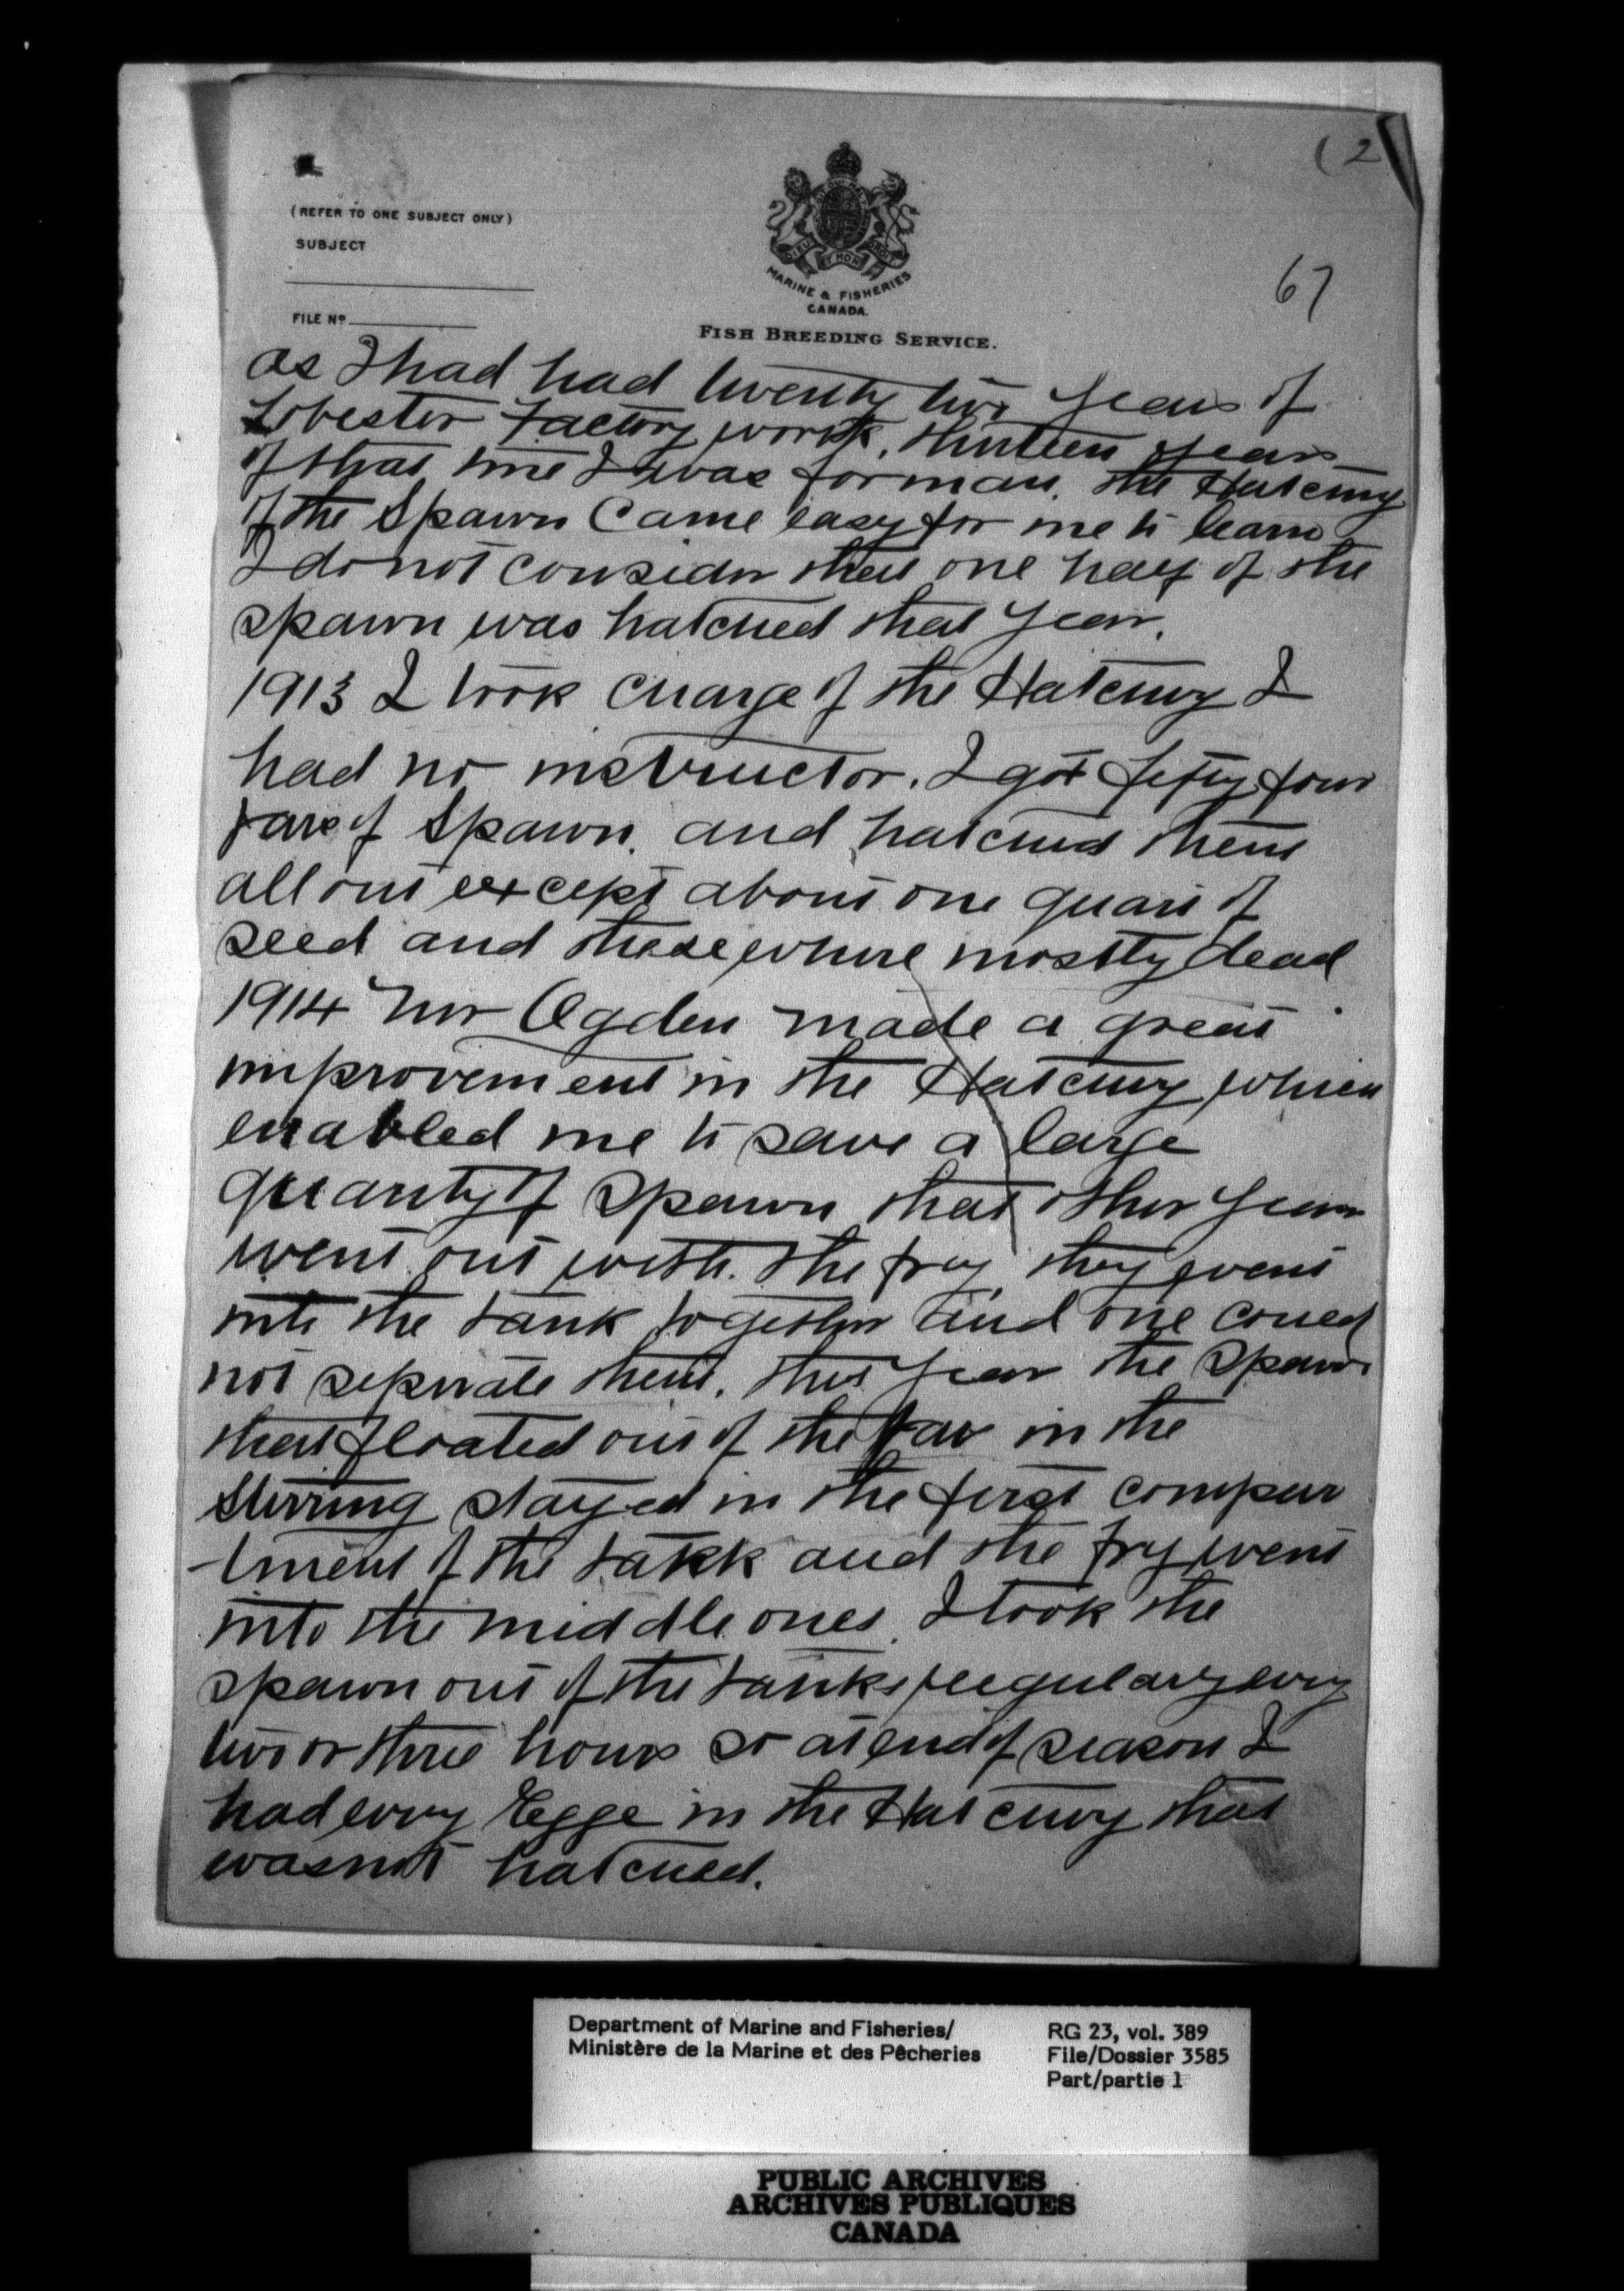 (2
(REFER TO ONE SUBJECT ONLY)
SUBJECT
FILE No
DIEU ET MON DROIT
MARINE & FISHERIES
CANADA.
FISH BREEDING SERVICE.
67
as I had had twenty two years of
Lobester Factory work, thirteen years
of that time I was forman. the Hatcery
of the Spawn Came easy for me to learn
I do not consider that one half of the
spawn was hatched that year.
1913 I took charge of the Hatchery I
had no instructor. I got fifty four
Jars of Spawn. and hatched them
all out except about one quart of
seed and these where mostly dead
1914 Mr Ogden made a great
improvement in the Hatchery which
enabled me to save a large
quantity of Spawn that other years
went out with the fry they went
into the tank together and one could
not seperate them. this year the Spawn
that floated out of the Jar in the
Stirring stayed in the first compar
-tment of the tank and the fry went
into the middle ones. I took the
spawn out of the tanks regulary evry
two or three hours so at end of season I
had evry Egge in the Hatchery that
was not hatched.
Department of Marine and Fisheries/
Ministère de la Marine et des Pêcheries
RG 23, vol. 389
File/Dossier 3585
Part/partie 1
PUBLIC ARCHIVES
ARCHIVES PUBLIQUES
CANADA